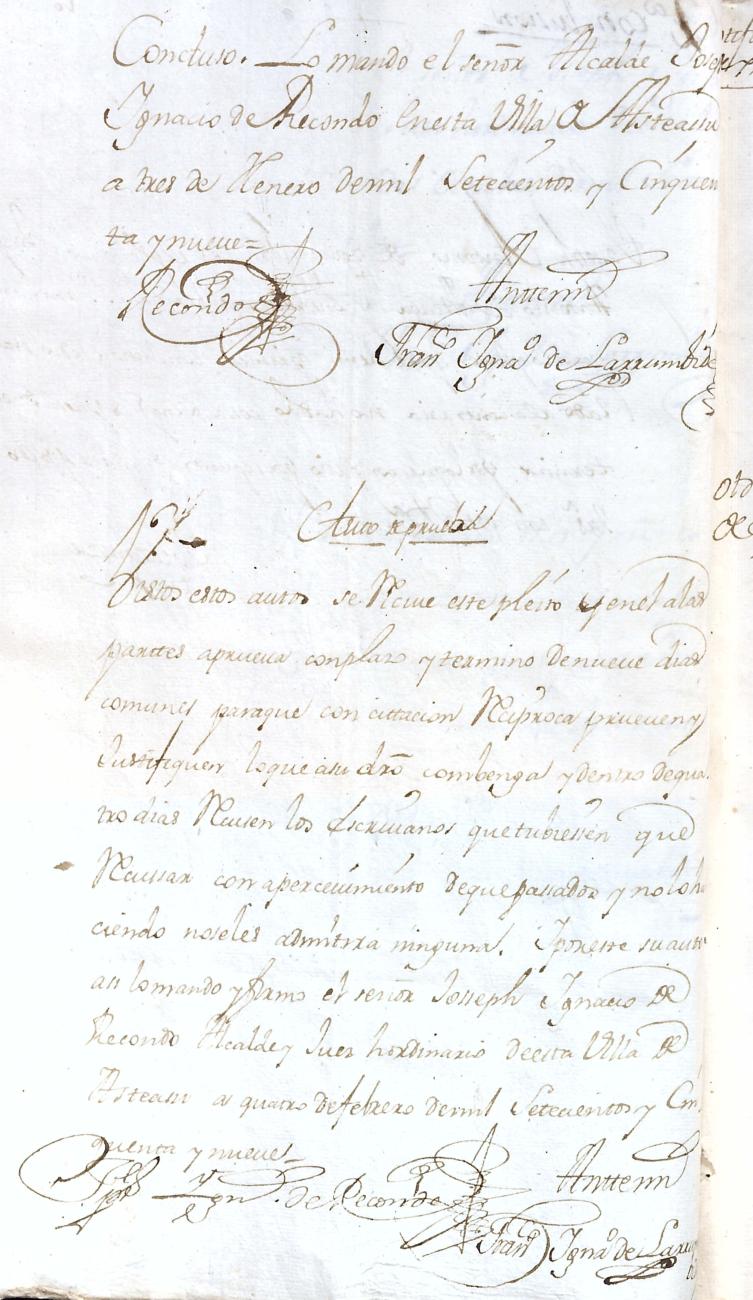 Concluso. Lo mando el señor Alcalde Joseph
Ignacio de Recondo en esta Villa de Asteasu
a tres de Henero de mil Setecientos y Cinquen
ta y nueve=
Recondo
Antte mi
Franco Ignao de Larrumbide
Auto de prueba
Vistos estos autos se Recive este pleito y en el a las
parttes a prueva con plazo y termino de nueve dias
comunes para que con cittacion Reciproca prueven y
Justifiquen lo que a su dro combenga y dentro de qua
tro dias Recusen los Escrivanos que tubiessen que
Recussar con apercevimiento de que passados y no lo ha
ciendo no se les admitira ninguna. Y por este su auto
assi lo mando y firmo el señor Josseph Ignacio de
Recondo Alcalde y Juez hordinario de esta Villa de
Asteasu a quatro de febrero de mil Setecientos y Cin
quenta y nueve=
Jph Ign. de Recondo
Antte mi
Franco Ignao de Larrum